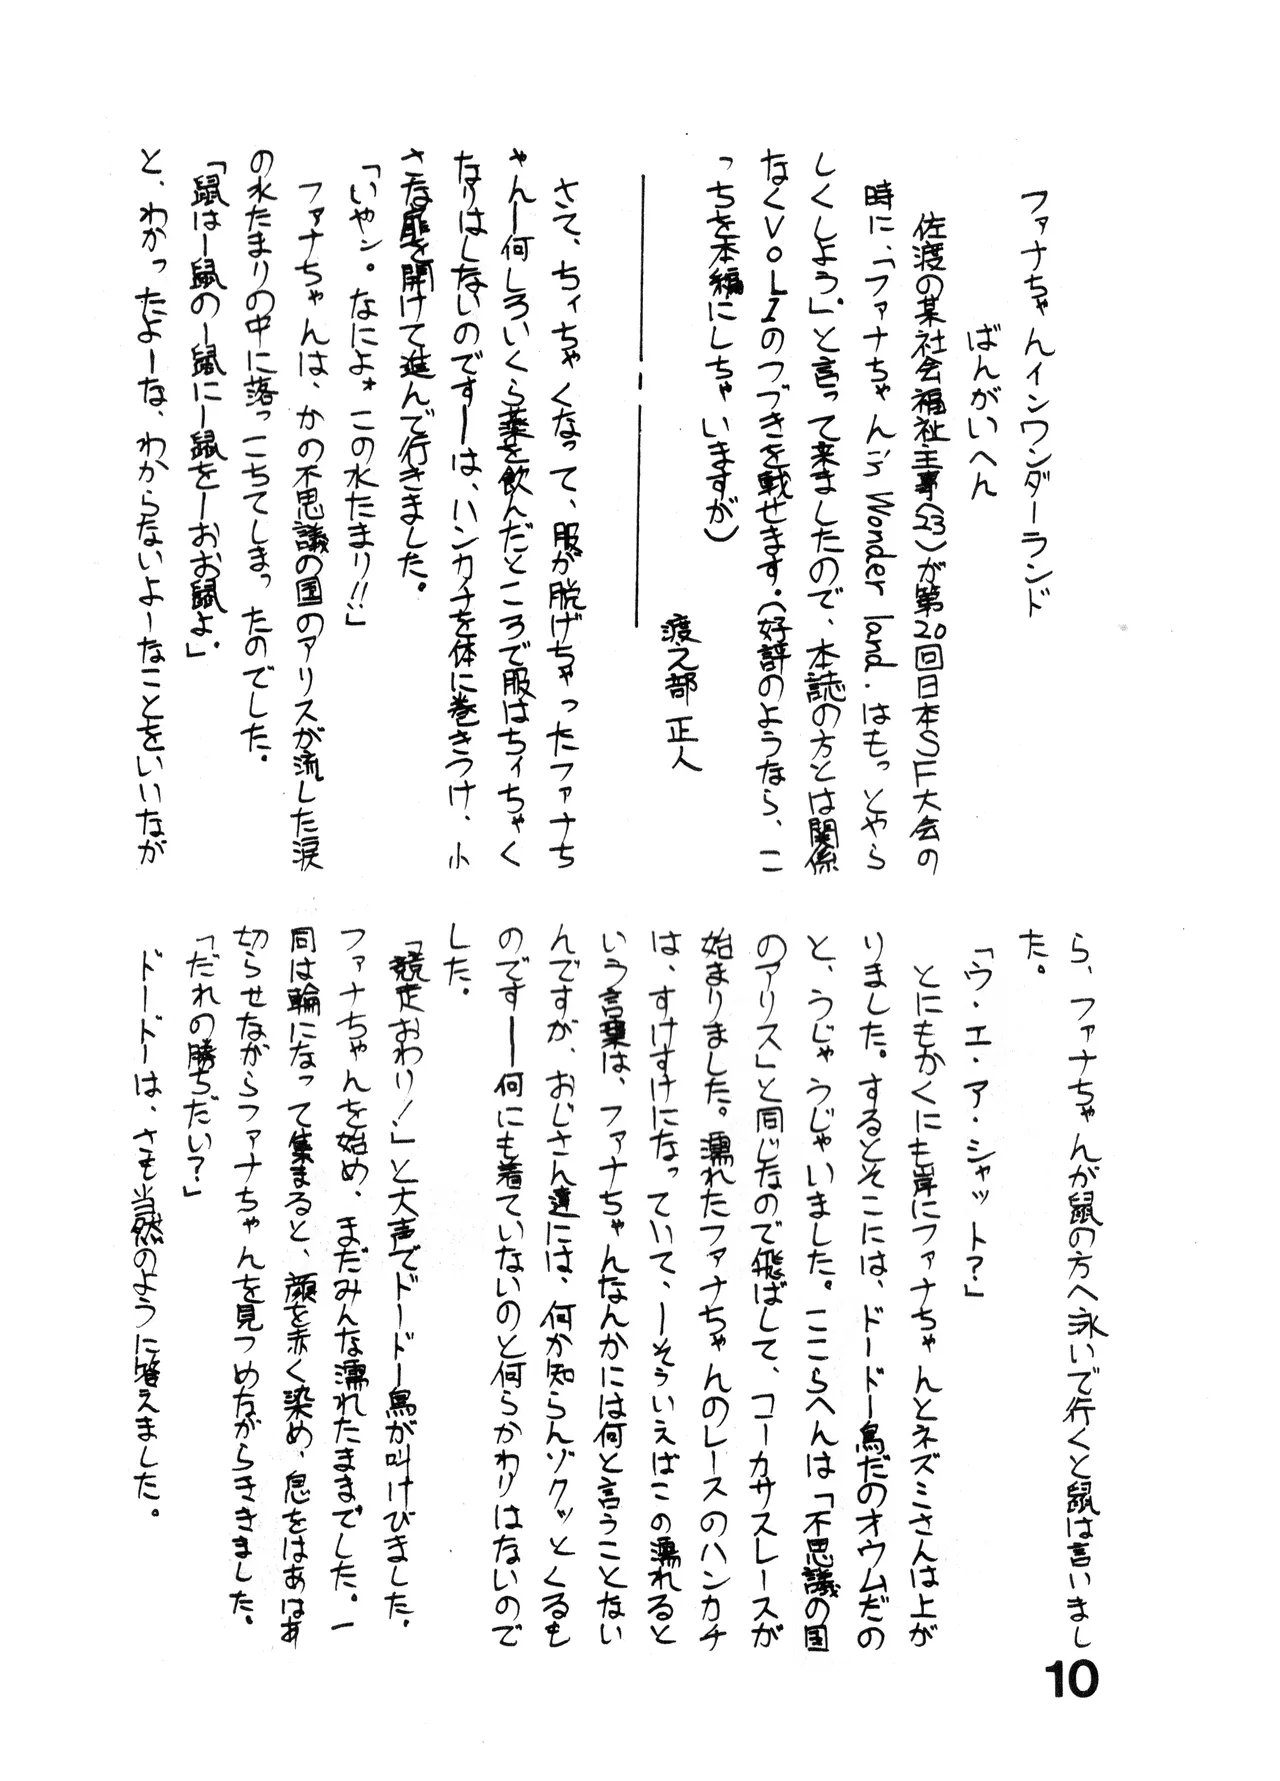 ファナちゃんインワンダーランド
ばんがいへん
佐渡の某社会福祉主事(23)が第20回日本SF大会の
時に、「ファナちゃん in Wonder land.はもっとやら
しくしよう」と言って来ましたので、本誌の方とは関係
なくVOL1のつづきを載せます。(好評のようなら、こ
っちを本編にしちゃいますが)
渡之部 正人
さて、ちィちゃくなって、服が脱げちゃったファナち
ゃん―何しろいくら薬を飲んだところで服はちィちゃく
なりはしないのです―は、ハンカチを体に巻きつけ、小
さな扉を開けて進んで行きました。
「いやン。なによォこの水たまり!!」
ファナちゃんは、かの不思議の国のアリスが流した涙
の水たまりの中に落っこちてしまったのでした。
「鼠は―鼠の―鼠に―鼠を―おお鼠よ」
と、わかったよーな、わからないよーなことをいいなが
ら、ファナちゃんが鼠の方へ泳いで行くと鼠は言いまし
た。
「ウ・エ・ア・シャット?」
とにもかくにも岸にファナちゃんとネズミさんは上が
りました。するとそこには、ドードー鳥だのオウムだの
と、うじゃうじゃいました。ここらへんは「不思議の国
のアリス」と同じなので飛ばして、コーカサスレースが
始まりました。濡れたファナちゃんのレースのハンカチ
は、すけすけになっていて、―そういえばこの濡れると
いう言葉は、ファナちゃんなんかには何と言うことない
んですが、おじさん達には、何か知らんゾクッとくるも
のです―何にも着ていないのと何らかわりはないので
した。
「競走おわり!」と大声でドードー鳥が叫けびました。
ファナちゃんを始め、まだみんな濡れたままでした。一
同は輪になって集まると、顔を赤く染め、息をはあはあ
切らせながらファナちゃんを見つめながらききました。
「だれの勝ちだい?」
ドードーは、さも当然のように答えました。
10